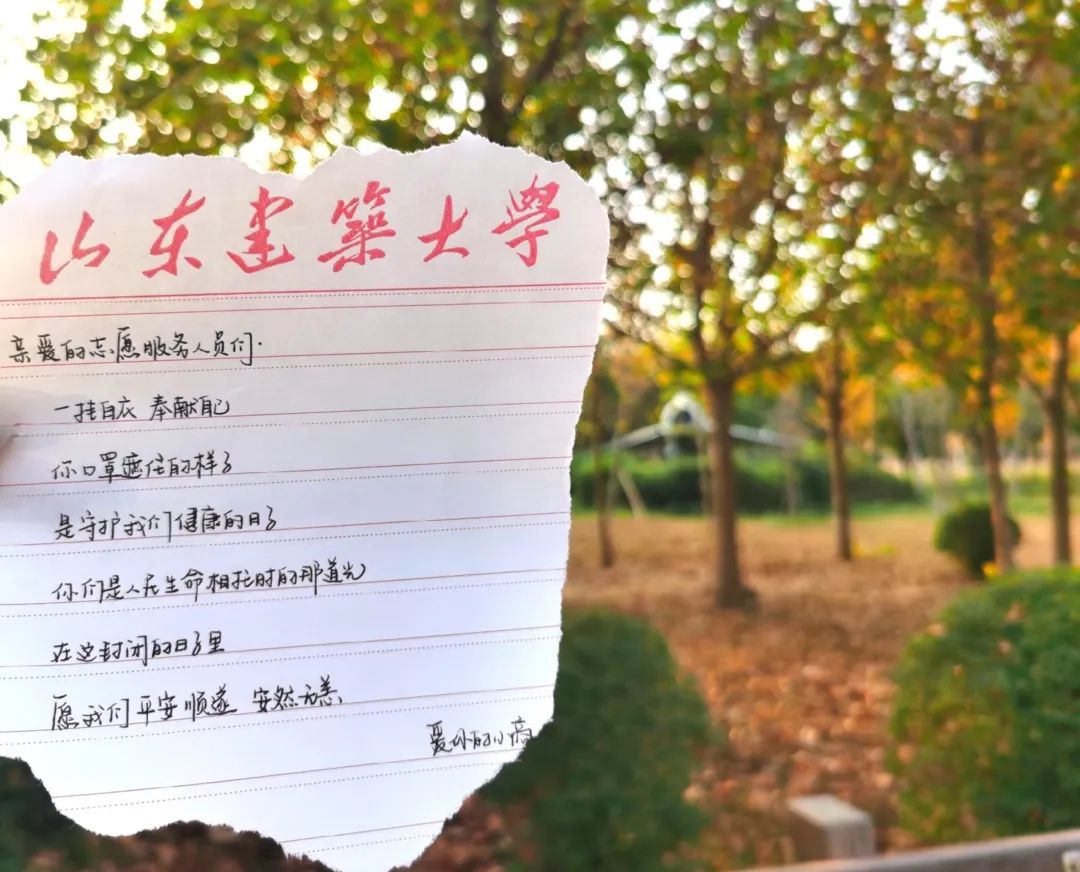 山东建築大学
亲爱的志愿服务人员们.
一挂白衣 奉献自己
你口罩遮住的样子
是守护我们健康的日子
你们是人民生命相托时的那道光
在这封闭的日子里
愿我们平安顺遂 安然无恙
爱你的小